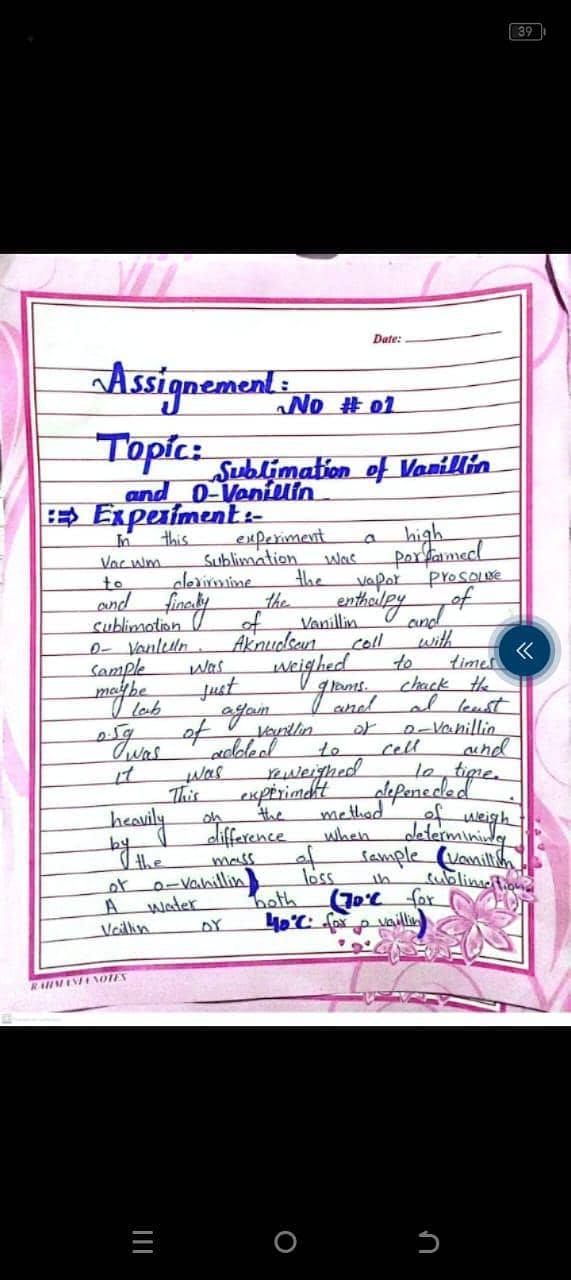 39
Date:
Assignement:
No # 01
Topic:
Sublimation of Vanillin
and O-Vanillin
:⇒ Experiment:-
In this experiment a high
Vacuum Sublimation was porformed
to
the vapor prosoure
and finally the enthalpy of
sublimotion of Vanillin and
O- Aknudsen coll with
sample was weighed to times
maybe just grams. chack the
lab again and at least
0.5g of vanillin or o-Vanillin
was added to cell and
it was reweighed to time.
This experiment depeneded
heavily on the method of weigh
by difference when determining
the mass of sample (vanillin
or o-vanillin) loss in
A water both (70°C for
or 40°C: for o vaillin)
RAHMANIA NOTES